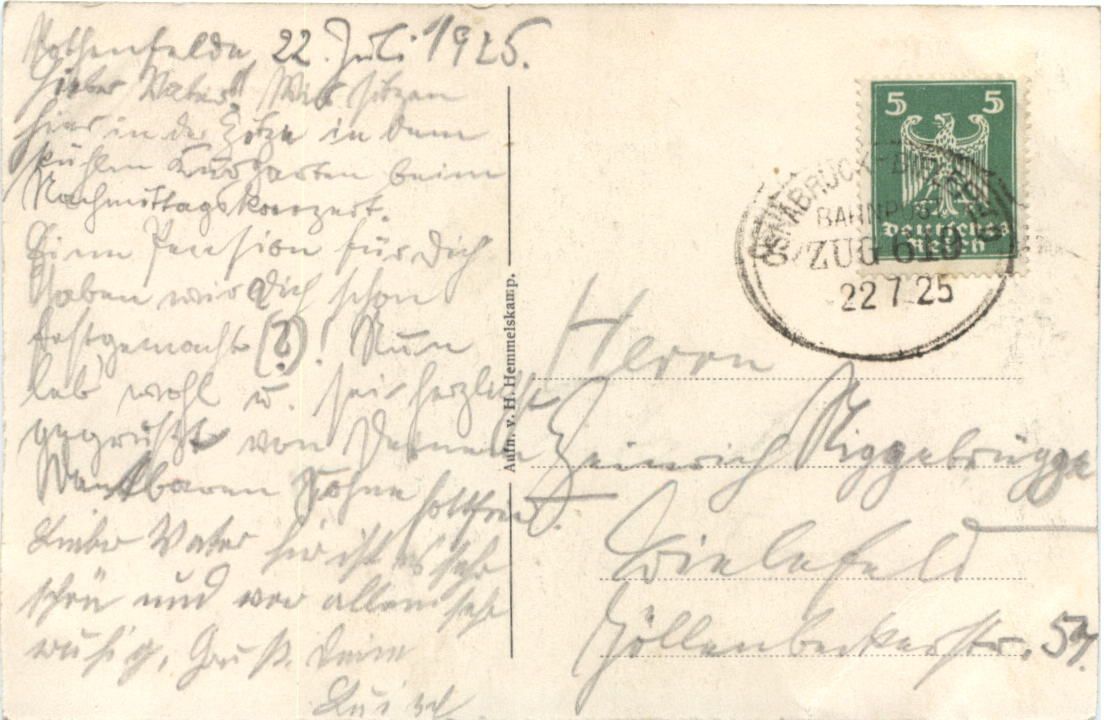 Rothenfelde, 22. Juli 1925.
Lieber Vater! Wir sitzen
hier in der Hitze in dem
kühlen Kurgarten beim
Nachmittagskonzert.
Eine Pension für Dich
haben wir Dich schon
festgemacht (?)! Nun
leb wohl u. sei herzlich
gegrüßt von Deinem
dankbaren Sohne Gottfried.
Lieber Vater hir ist es sehr
schön und vor allem sehr
ruhig, Gruß. Deine
Luise
Aufn. v. H. Hemmelskamp.
5 5
Deutsches
Reich
OSNABRÜCK-
BAHNPOST
ZUG 619
22 7 25
Herrn
Heinrich Niggebrügge
Bielefeld
Jöllenbeckerstr. 59.